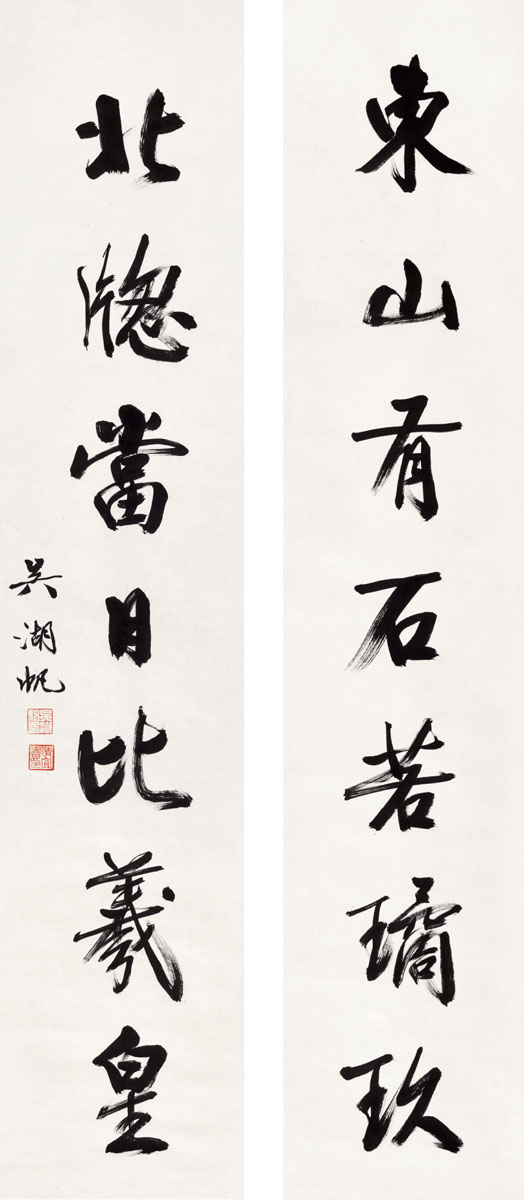 東山有石若璚玖
北牎當日比羲皇
吳湖帆